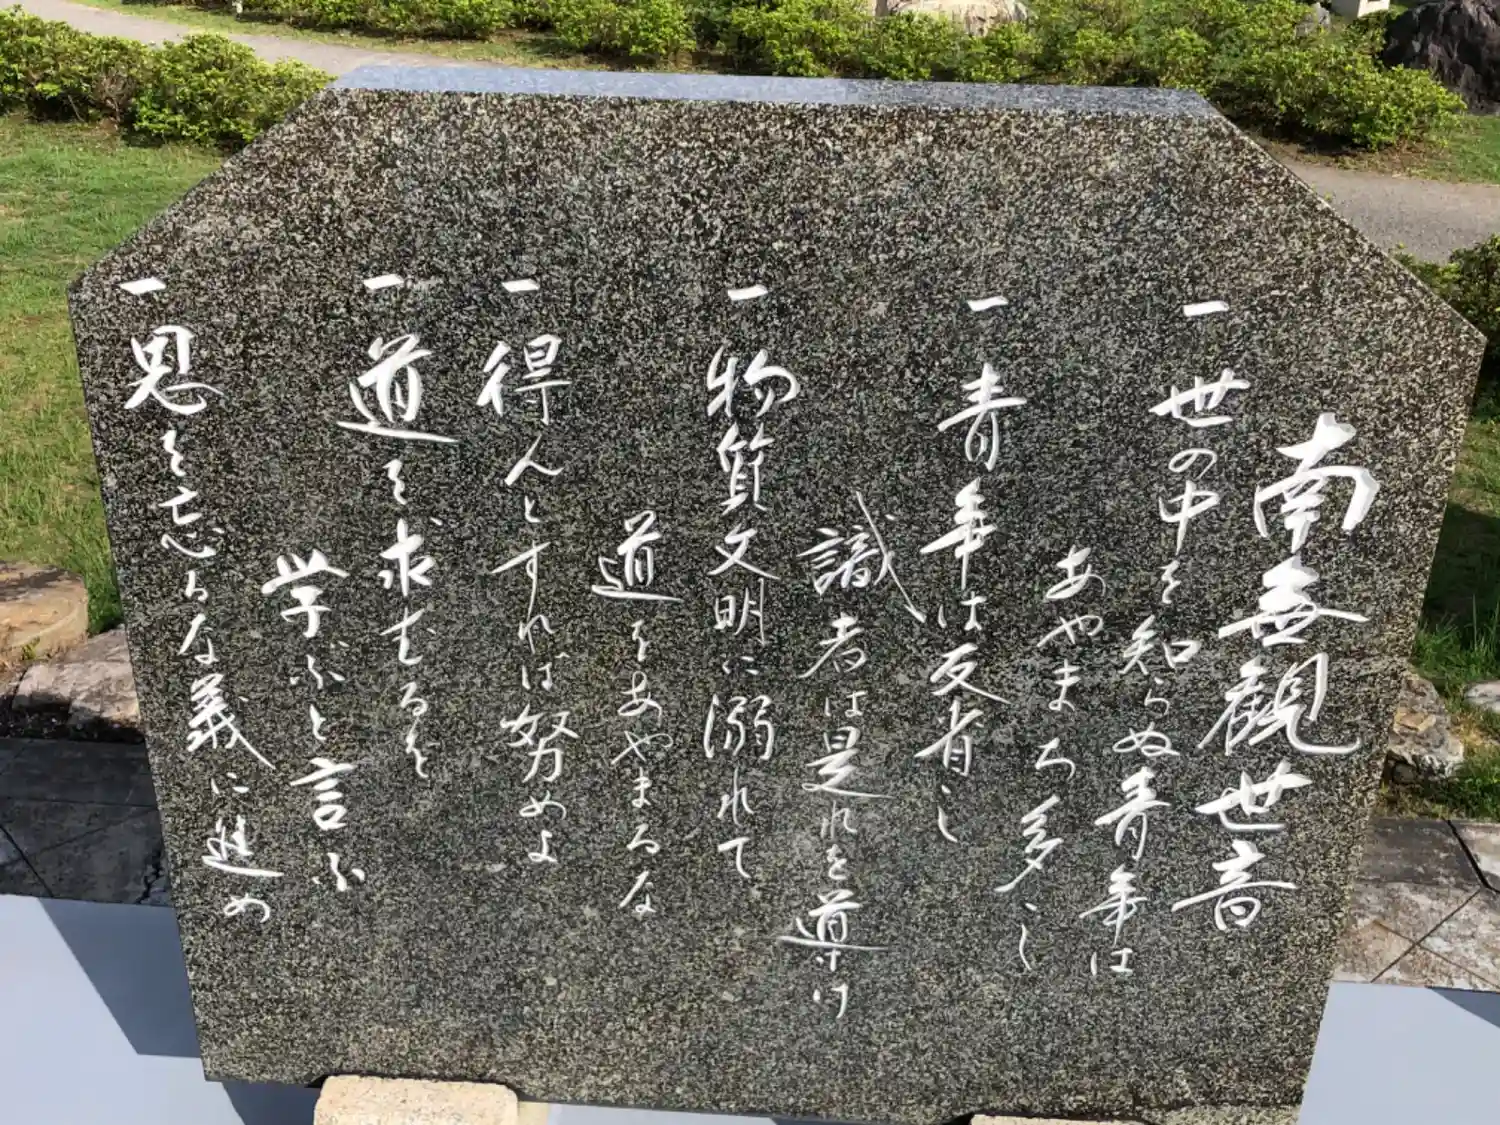 南無観世音
一 世の中を知らぬ青年は
あやまち多し
一 青年は反省し
識者は是れを導け
一 物質文明に溺れて
道をあやまるな
一 得んとすれば努めよ
一 道を求むるを
学ぶと言ふ
一 恩を忘るな義に進め